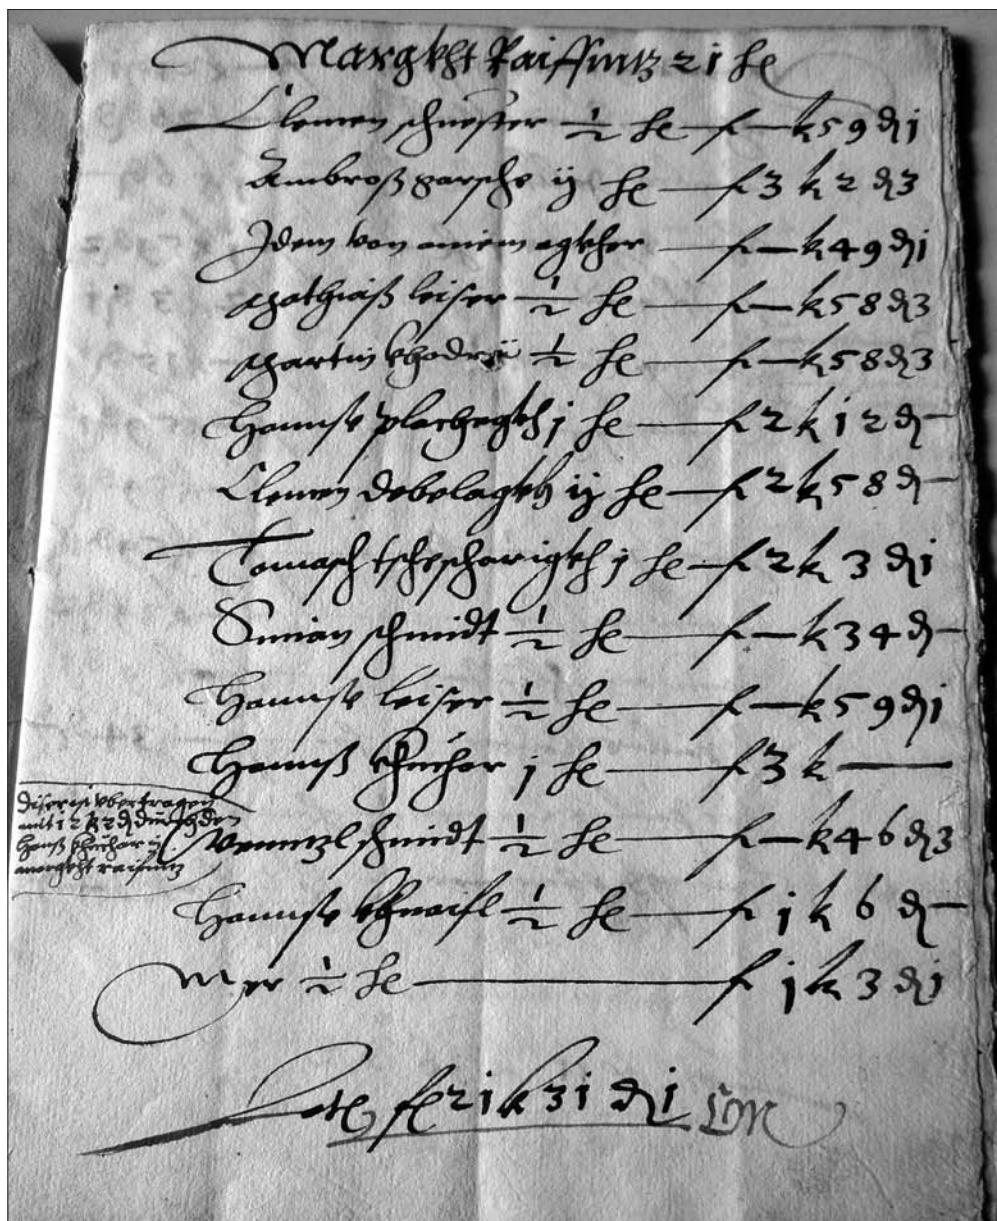 Margkht Raiffnitz 21 he
Clemen schuester ½ he — f — k 59 ₰ j
Ambroß parsche ij he — f 3 k 2 ₰ 3
Idem von ainem agkher — f — k 49 ₰ j
Mathiaß leiser ½ he — f — k 58 ₰ 3
Martin ½ he — f — k 58 ₰ 3
Hannse j he — f 2 k 12 ₰ —
Clemen debelagkh ij he — f 2 k 58 ₰ —
Tomasch tschescharigkh j he — f 2 k 3 ₰ j
Simian schmidt ½ he — f — k 34 ₰ —
Hannse leiser ½ he — f — k 59 ₰ j
Hannß khuchar j he — f 3 k —
diser ist vbertragen
mit 12 k 2 ₰ durch den
Hanß khuchar in
margkht raifnitz
Wenntzl schmidt ½ he — f — k 46 ₰ 3
Hannse ½ he — f j k 6 ₰ —
Mer ½ he — f j k 3 ₰ j
Late fl 21 k 31 ₰ j